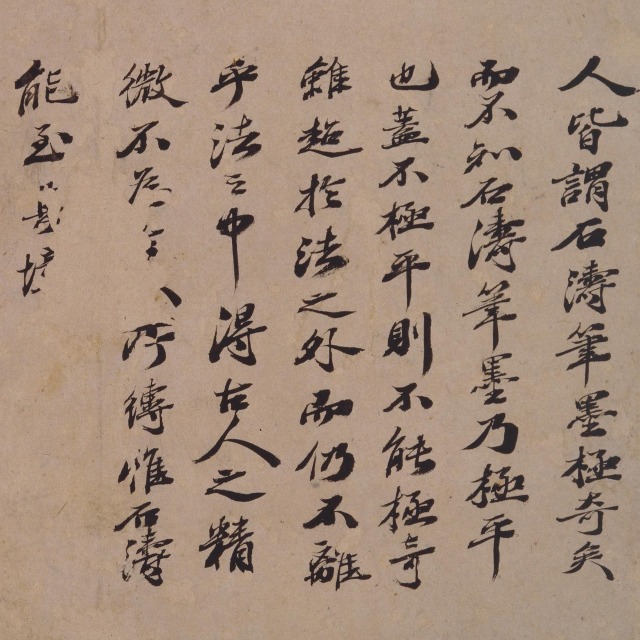 人皆謂石濤筆墨極奇矣
而不知石濤筆墨乃極平
也蓋不極平則不能極奇
雖超於法之外而仍不離
乎法之中得古人之精
微不為古人所縛惟石濤
能至此境